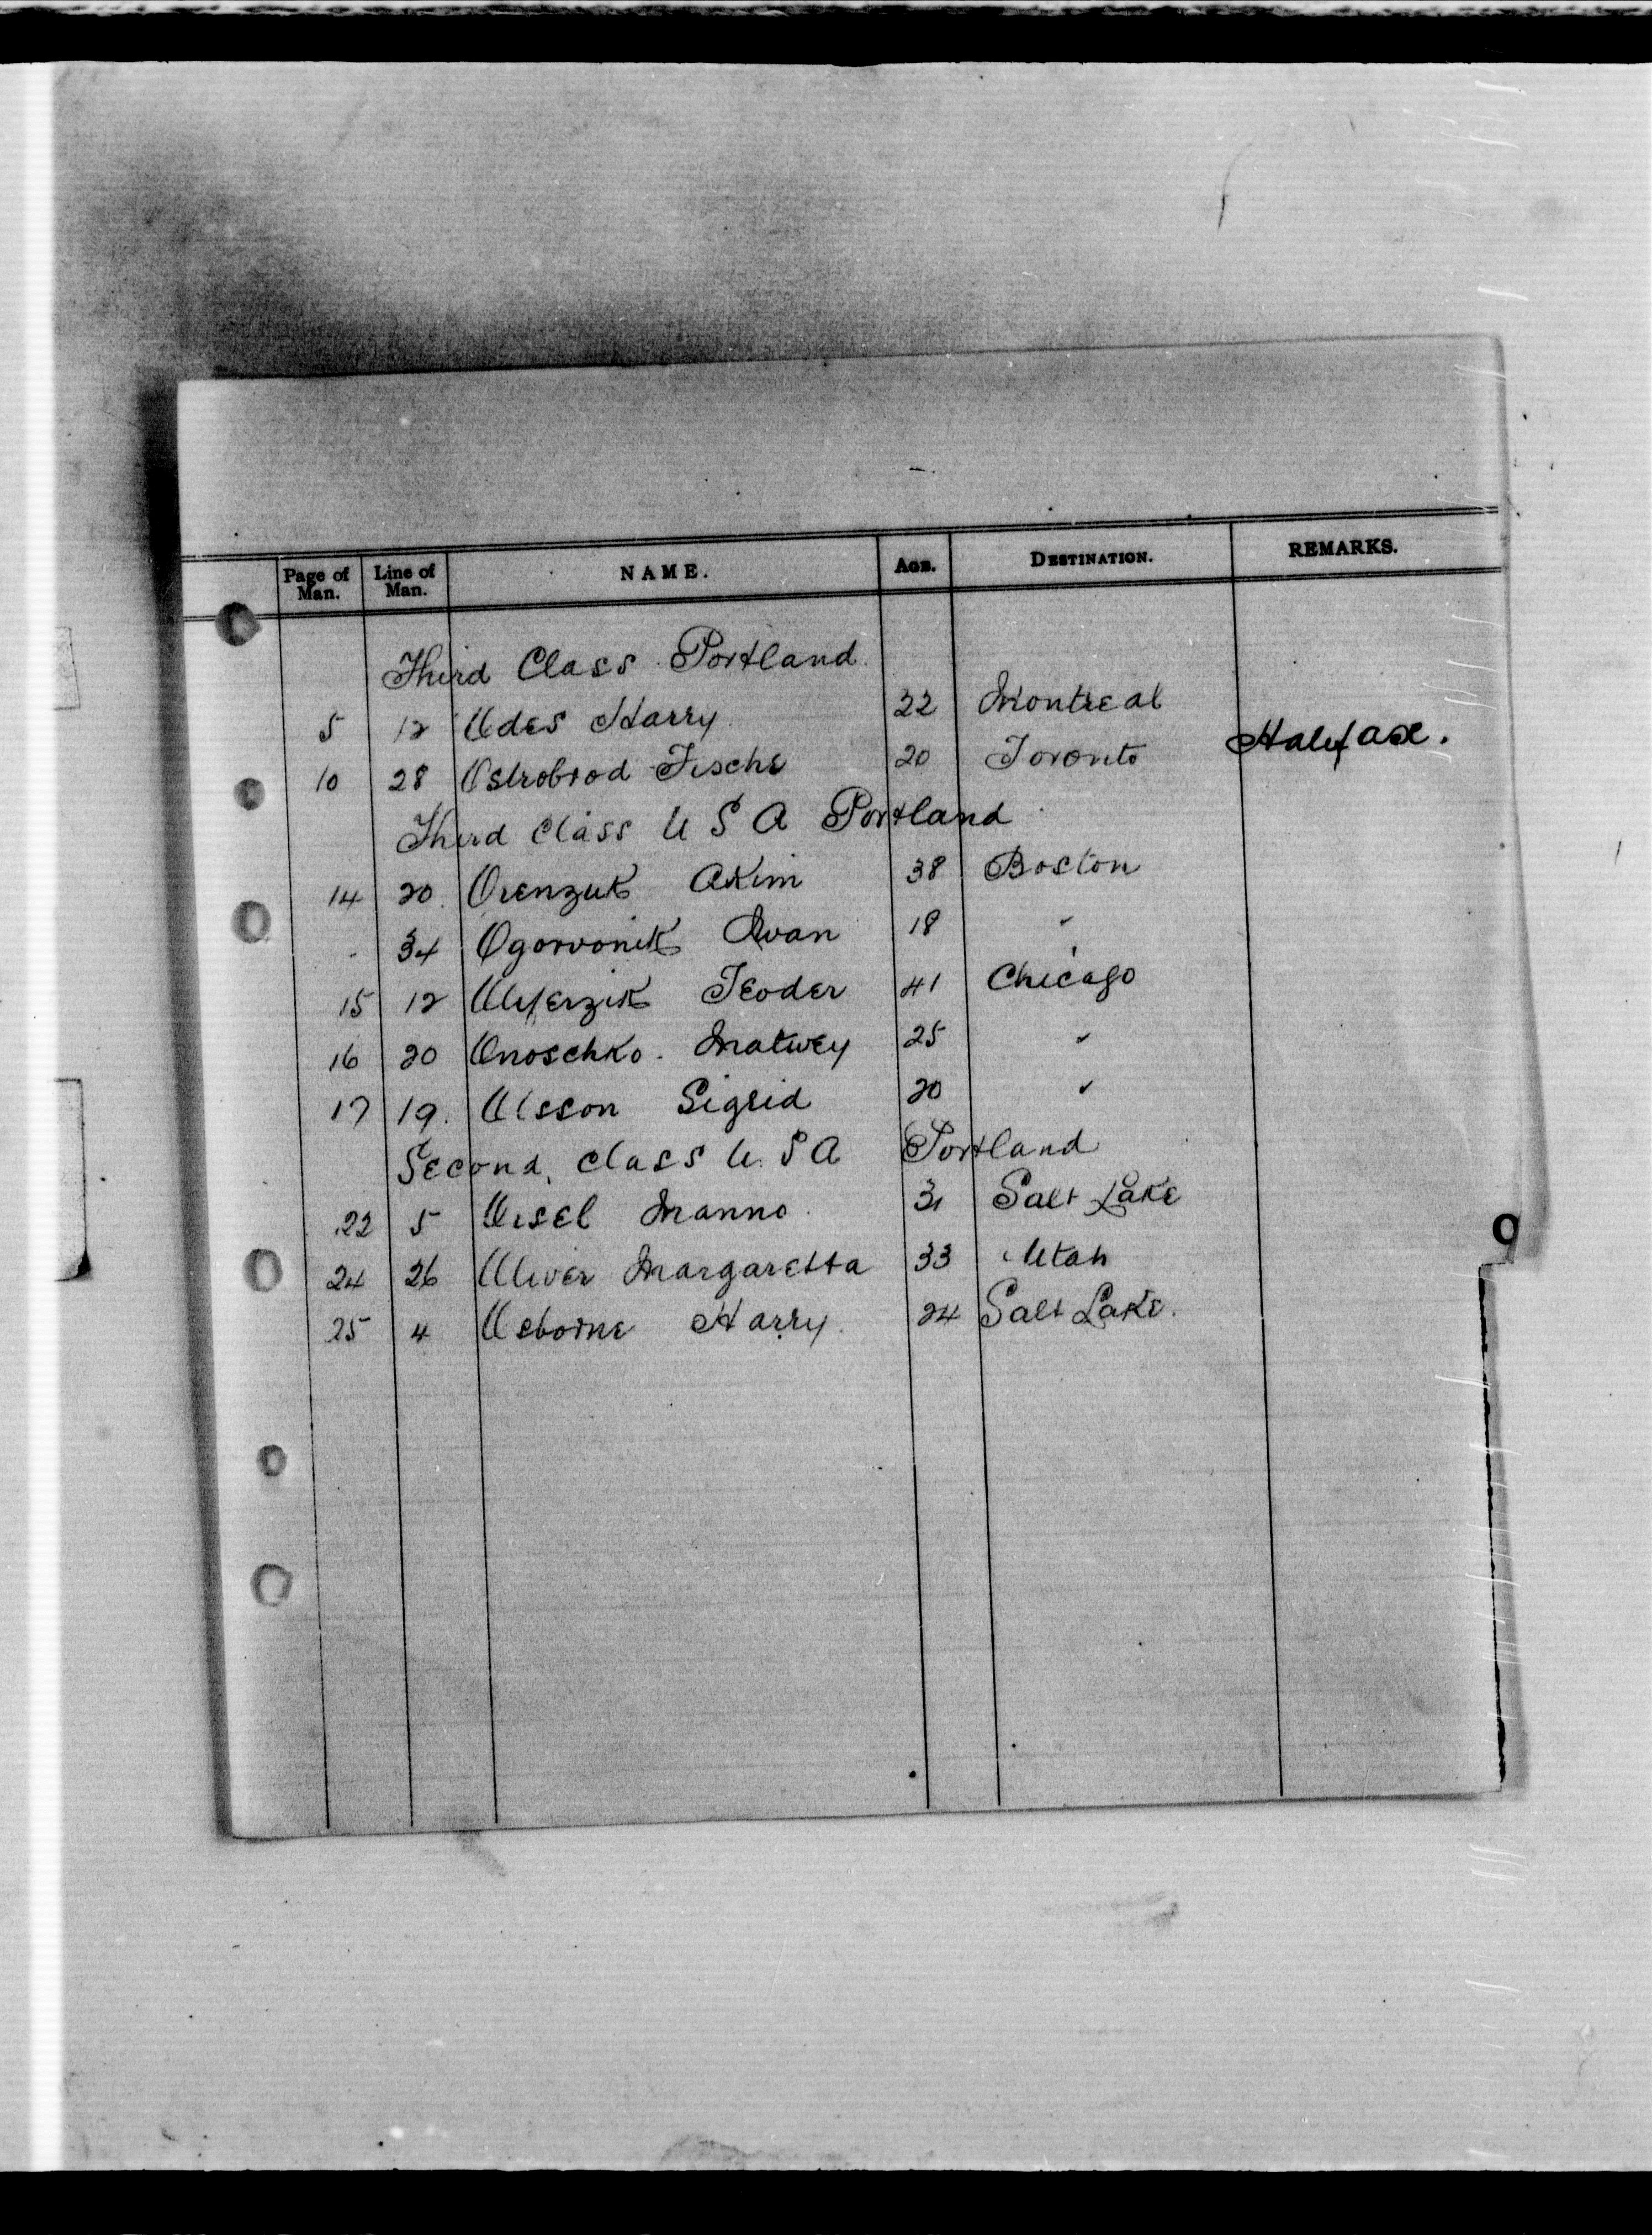 Page of Man. Line of Man. NAME. AGE. DESTINATION. REMARKS.
Third Class Portland
5 12 Odes Harry 22 Montreal
10 28 Ostrobrod Fische 20 Toronto Halifax.
Third Class U S A Portland
14 20 Orenzuk Akim 38 Boston
" 34 Ogorvonik Ivan 18 "
15 12 Teoder 41 Chicago
16 20 Onoschko Matwey 25 "
17 19 Olsson Sigrid 20 "
Second Class U.S A Portland
22 5 Manno 31 Salt Lake
24 26 Oliver Margaretta 33 Utah
25 4 Osborne Harry 24 Salt Lake.
O